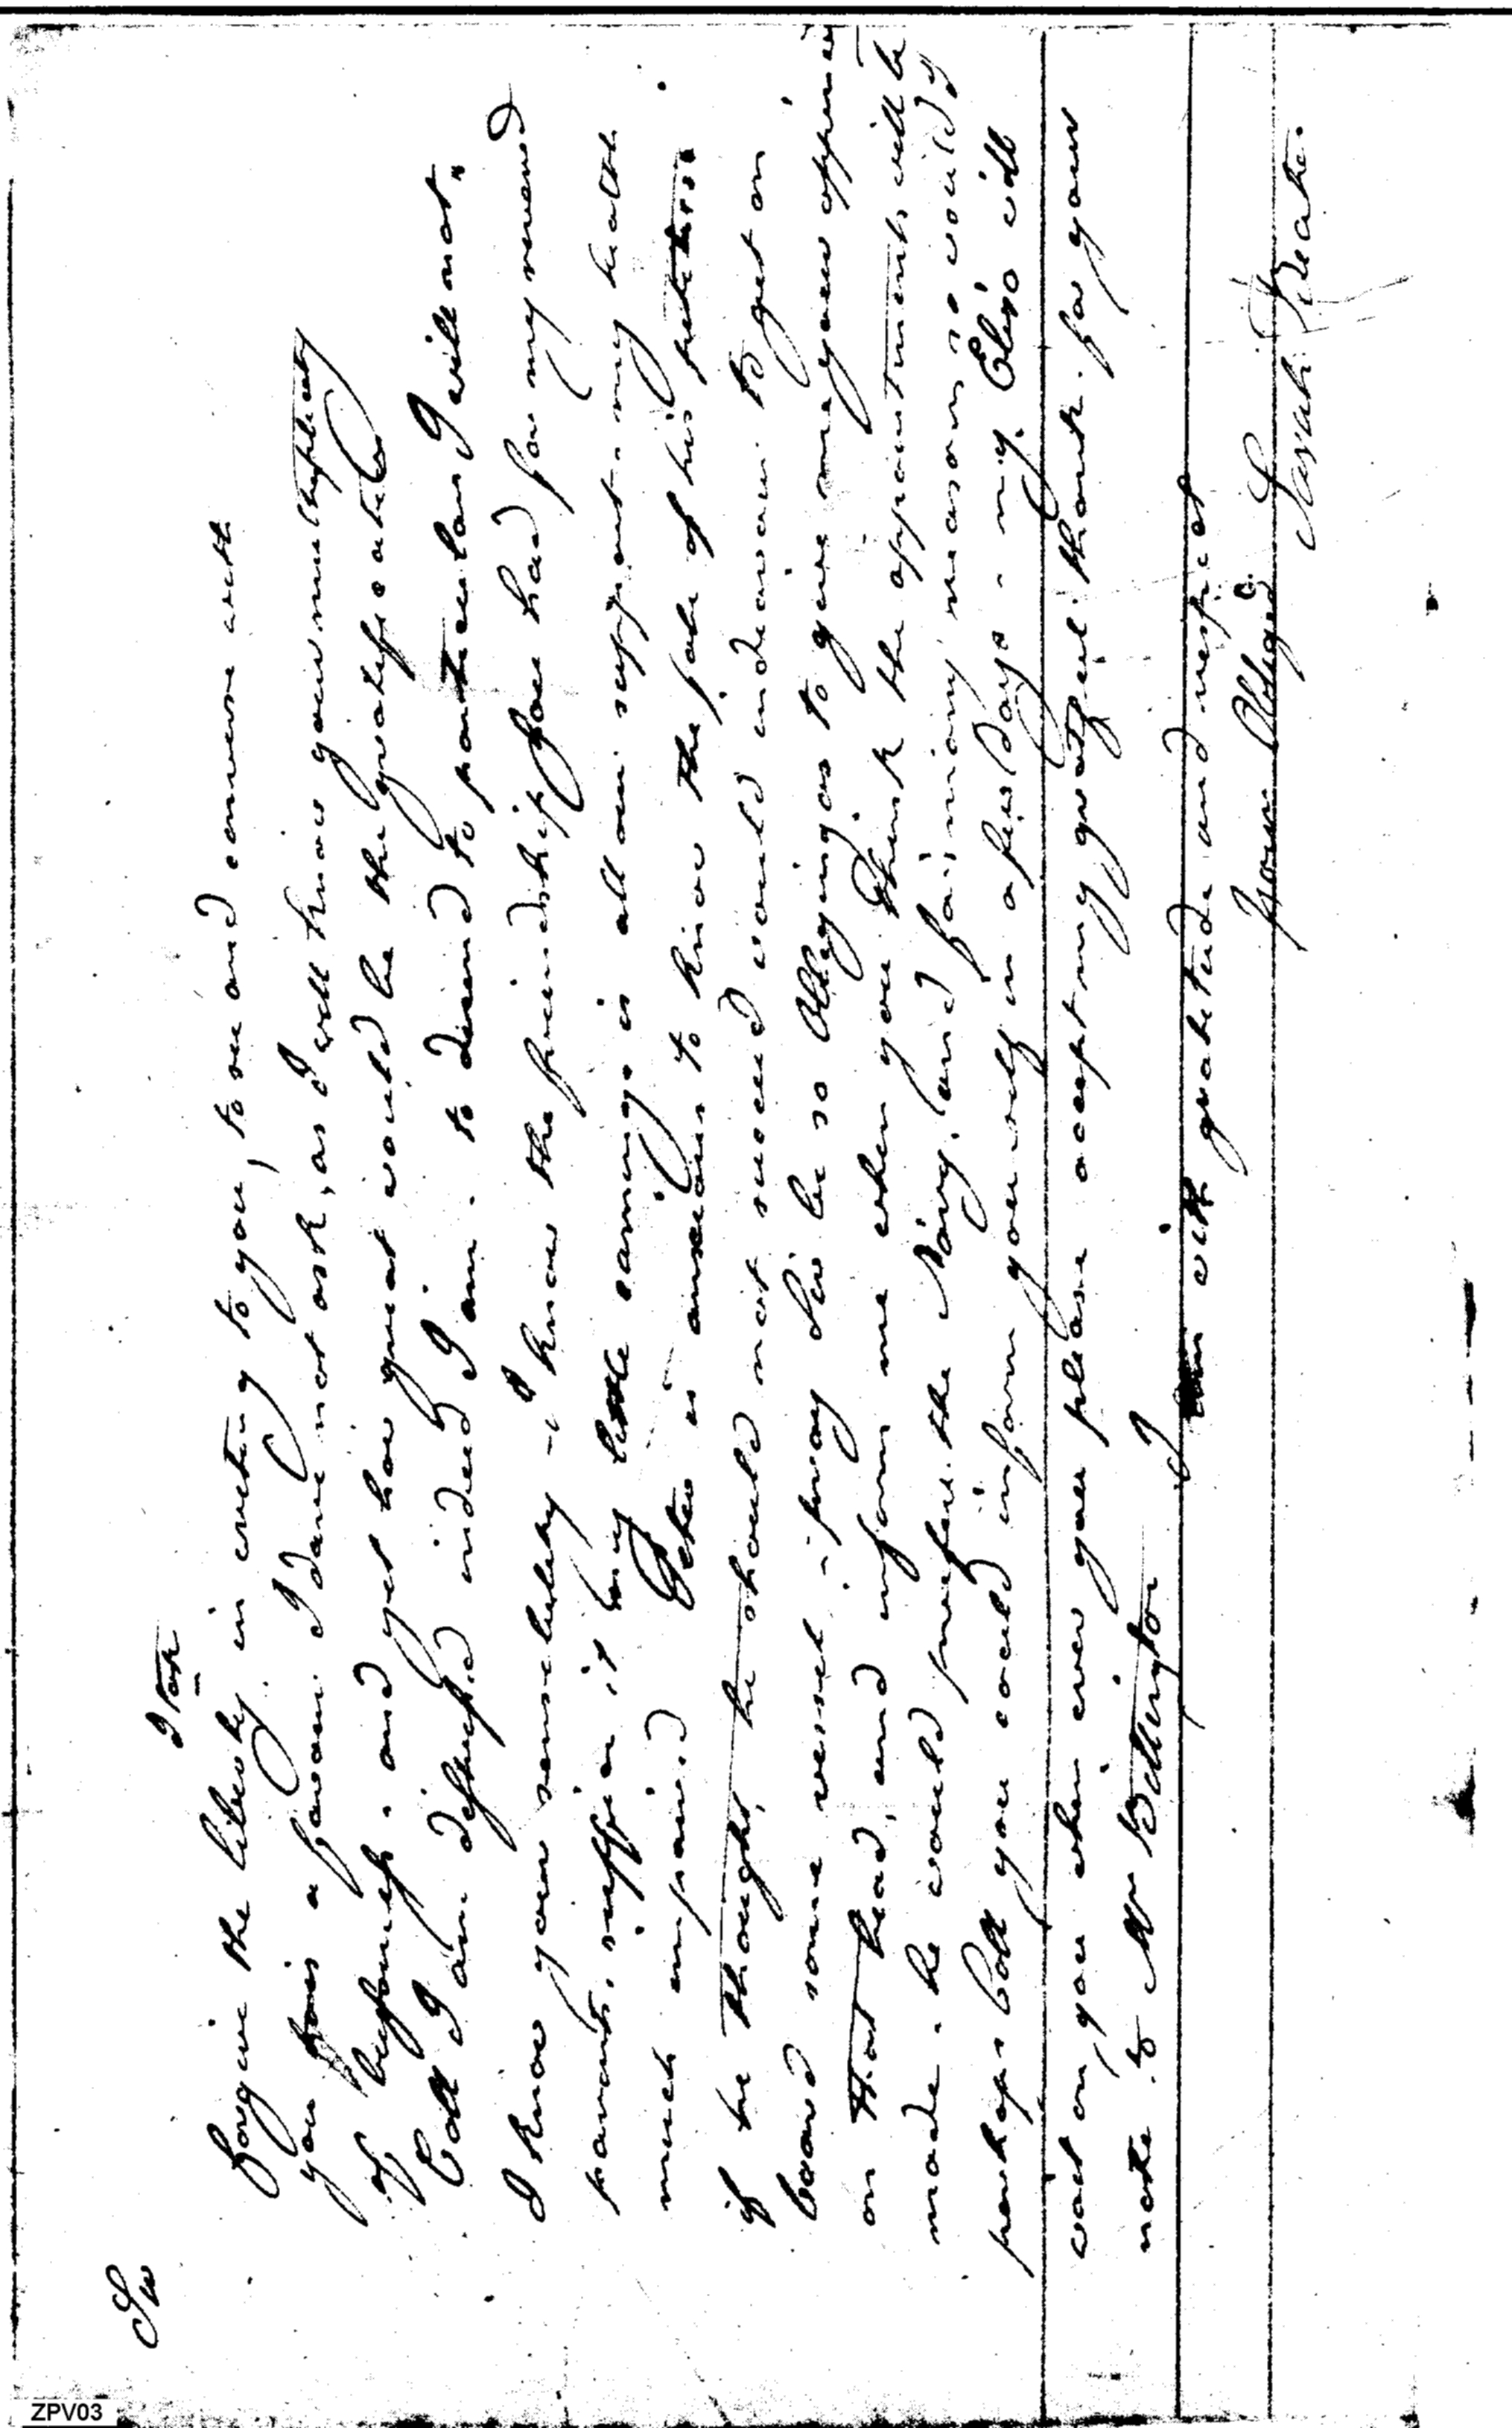 Sir
forgive the liberty, in writing to you, to see and converse with
you is a favour I dare not ask, as I well know your multiplicity
of business. and yet how great would be the gratification
I am distressed indeed I am. to descend to particulars I will not.
I know your sensibility - I know the friendship you had for my revered
parents, suffice it my little earnings is all our support. my health
much impaired Peter is anxious to know the fate of his petition
if he thought, he should not succeed would indeavour to get on
board some vessel. pray Sir be so Obliging as to give me your opinion
on that head, and inform me when you think the appointments will be
made. he would prefer the Navy, and for many reasons so would I
perhaps you could inform yourself in a few days. my Eliza will
wait on you when ever you please accept my gratefull thank. for your
note to Mr Bellington
I am with gratitude and respect
Your Obliged
Sarah
ZPV03